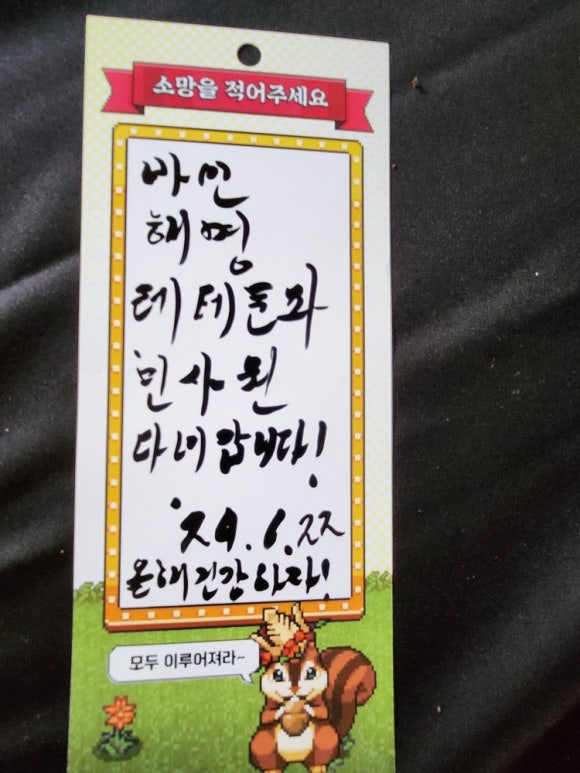 소망을 적어주세요
바인
해명
테테돈과
인사원
다녀갑니다!
'24.6.22
올해 건강하자!
모두 이루어져라~